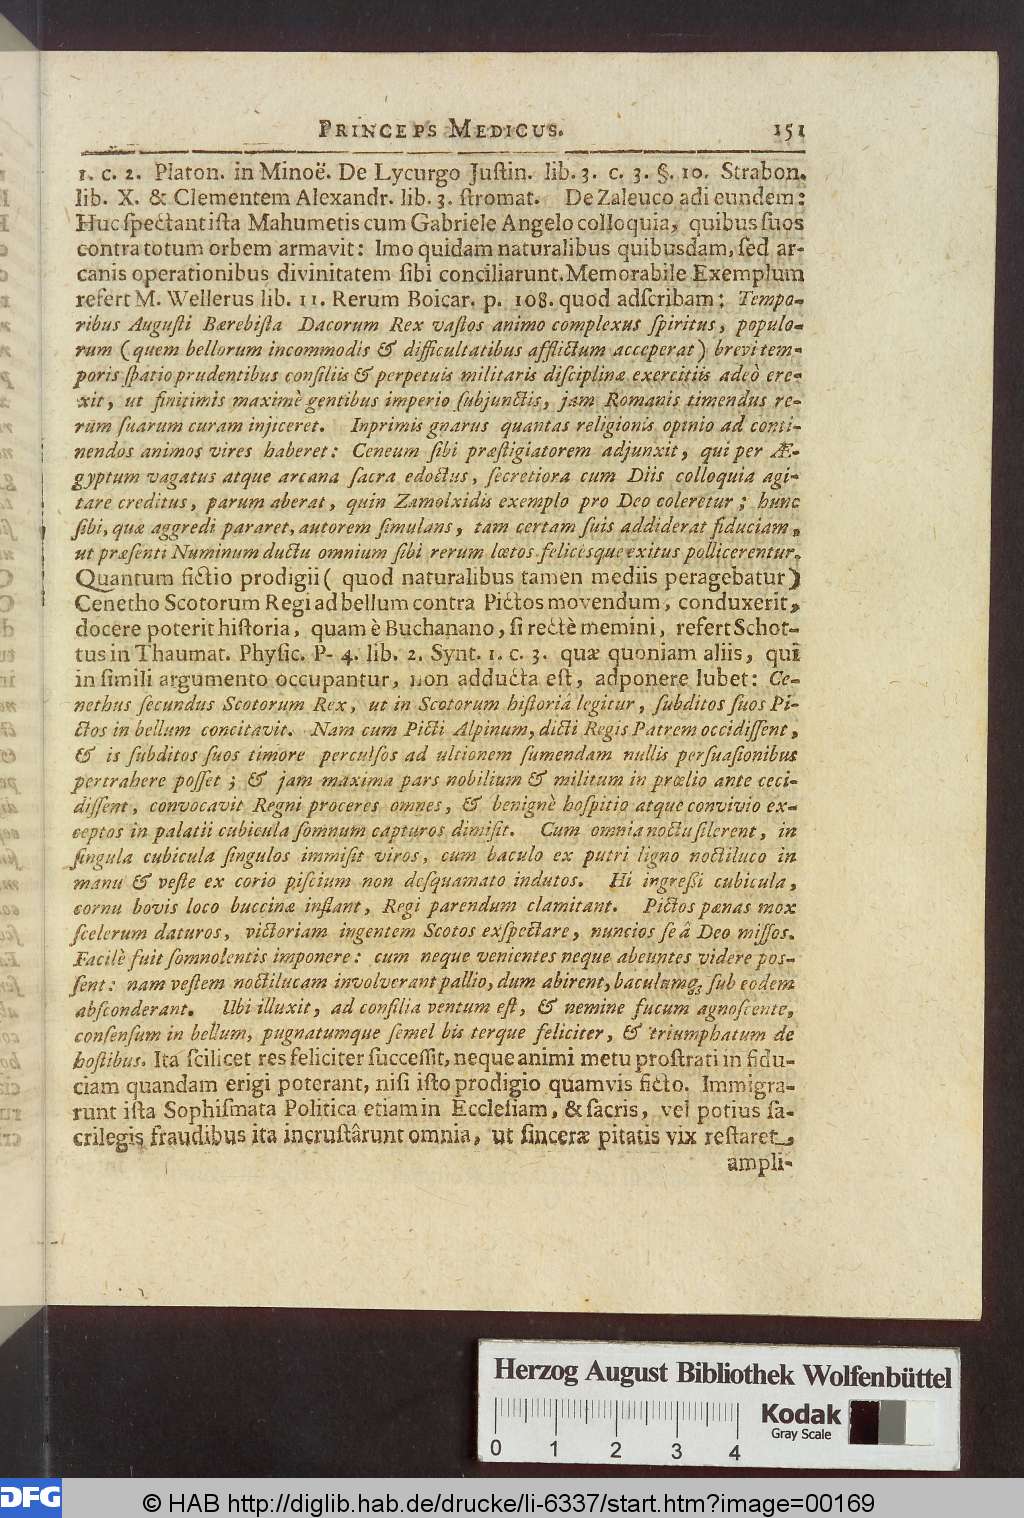 PRINCEPS MEDICUS. 151
1. c. 2. Platon. in Minoë. De Lycurgo Juſtin. lib. 3. c. 3. §. 10. Strabon.
lib. X. & Clementem Alexandr. lib. 3. ſtromat. De Zaleuco adi eundem:
Huc ſpectant iſta Mahumetis cum Gabriele Angelo colloquia, quibus ſuos
contra totum orbem armavit: Imo quidam naturalibus quibusdam, ſed ar-
canis operationibus divinitatem ſibi conciliarunt. Memorabile Exemplum
refert M. Wellerus lib. 11. Rerum Boicar. p. 108. quod adſcribam: Tempo-
ribus Auguſti Bærebiſta Dacorum Rex vaſtos animo complexus ſpiritus, populo-
rum (quem bellorum incommodis & difficultatibus afflictum acceperat) brevi tem-
poris ſpatio prudentibus conſiliis & perpetuis militaris diſciplinæ exercitiis adeò ere-
xit, ut finitimis maximè gentibus imperio ſubjunctis, jam Romanis timendus re-
rum ſuarum curam injiceret. Inprimis gnarus quantas religionis opinio ad conti-
nendos animos vires haberet: Ceneum ſibi præſtigiatorem adjunxit, qui per Æ-
gyptum vagatus atque arcana ſacra edoctus, ſecretiora cum Diis colloquia agi-
tare creditus, parum aberat, quin Zamolxidis exemplo pro Deo coleretur; hunc
ſibi, quæ aggredi pararet, autorem ſimulans, tam certam ſuis addiderat fiduciam,
ut præſenti Numinum ductu omnium ſibi rerum lœtos felicesque exitus pollicerentur.
Quantum fictio prodigii ( quod naturalibus tamen mediis peragebatur)
Cenetho Scotorum Regi ad bellum contra Pictos movendum, conduxerit,
docere poterit hiſtoria, quam è Buchanano, ſi rectè memini, refert Schot-
tus in Thaumat. Phyſic. P. 4. lib. 2. Synt. 1. c. 3. quæ quoniam aliis, qui
in ſimili argumento occupantur, non adducta eſt, adponere lubet: Ce-
nethus ſecundus Scotorum Rex, ut in Scotorum hiſtoriâ legitur, ſubditos ſuos Pi-
ctos in bellum concitavit. Nam cum Picti Alpinum, dicti Regis Patrem occidiſſent,
& is ſubditos ſuos timore perculſos ad ultionem ſumendam nullis perſuaſionibus
pertrahere poſſet; & jam maxima pars nobilium & militum in prœlio ante ceci-
diſſent, convocavit Regni proceres omnes, & benignè hoſpitio atque convivio ex-
ceptos in palatii cubicula ſomnum capturos dimiſit. Cum omnia noctu ſilerent, in
ſingula cubicula ſingulos immiſit viros, cum baculo ex putri ligno noctiluco in
manu & veſte ex corio piſcium non deſquamato indutos. Hi ingreſſi cubicula,
cornu bovis loco buccinæ inflant, Regi parendum clamitant. Pictos pœnas mox
ſcelerum daturos, victoriam ingentem Scotos exſpectare, nuncios ſe â Deo miſſos.
Facilè fuit ſomnolentis imponere: cum neque venientes neque abeuntes videre poſ-
ſent: nam veſtem noctilucam involverant pallio, dum abirent, baculumq; ſub eodem
abſconderant. Ubi illuxit, ad conſilia ventum eſt, & nemine fucum agnoſcente,
conſenſum in bellum, pugnatumque ſemel bis terque feliciter, & triumphatum de
hoſtibus. Ita ſcilicet res feliciter ſucceſſit, neque animi metu proſtrati in fidu-
ciam quandam erigi poterant, niſi iſto prodigio quamvis ficto. Immigra-
runt iſta Sophiſmata Politica etiam in Eccleſiam, & ſacris, vel potius ſa-
crilegis fraudibus ita incruſtârunt omnia, ut ſinceræ pitatis vix reſtaret,
ampli-
Herzog August Bibliothek Wolfenbüttel
Kodak
Gray Scale
0 1 2 3 4
DFG
© HAB http://diglib.hab.de/drucke/li-6337/start.htm?image=00169